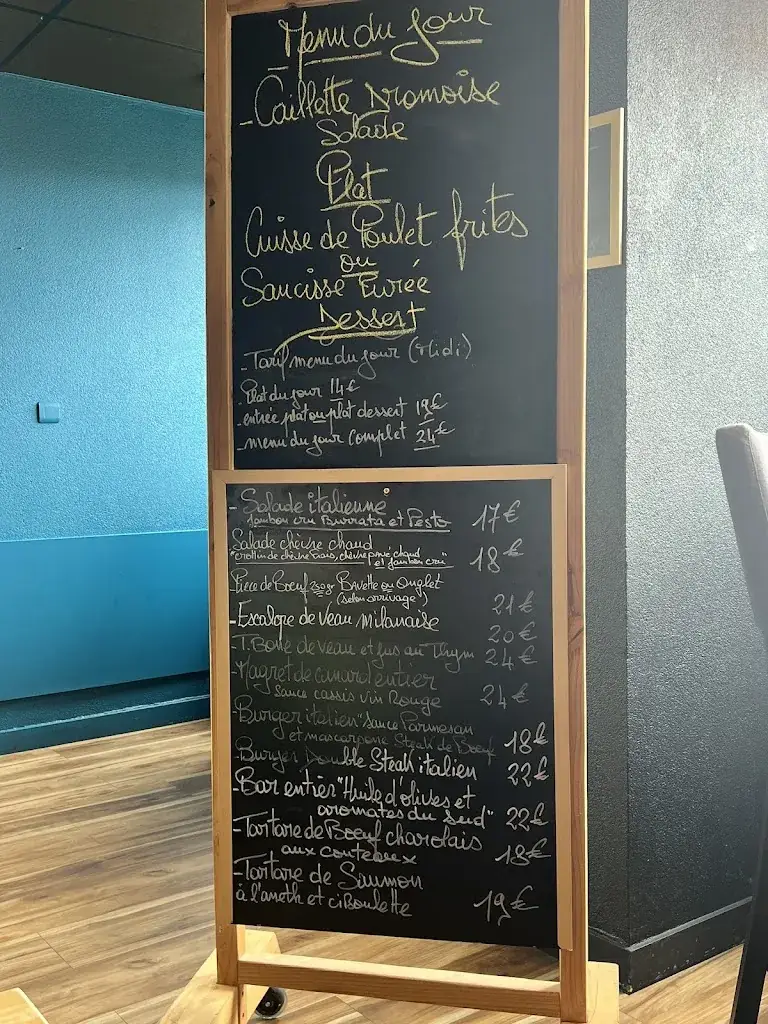 Menu du Jour
- Caillette Dromoise
Salade
Plat
Cuisse de Poulet frites
ou
Saucisse Purée
Dessert
- Tarif menu du jour (Midi)
- Plat du jour 14€
- entrée plat ou plat dessert 19€
- menu du jour complet 24€
- Salade italienne
Jambon cru Burrata et Pesto 17€
Salade chèvre chaud
"crottin de chèvre frais, chèvre pané chaud
et jambon cru" 18€
Pièce de Boeuf 250gr Bavette ou Onglet
(selon arrivage) 21€
- Escalope de veau milanaise 20€
- T.Bone de veau et jus au Thym 24€
- Magret de canard entier
Sauce cassis vin Rouge 24€
- Burger italien "sauce Parmesan
et mascarpone Steak de Boeuf 18€
- Burger Double Steak italien 22€
- Bar entier "Huile d'olives et
aromates du Sud" 22€
- Tartare de Boeuf charolais
aux couteaux 18€
- Tartare de Saumon
à l'aneth et ciboulette 19€